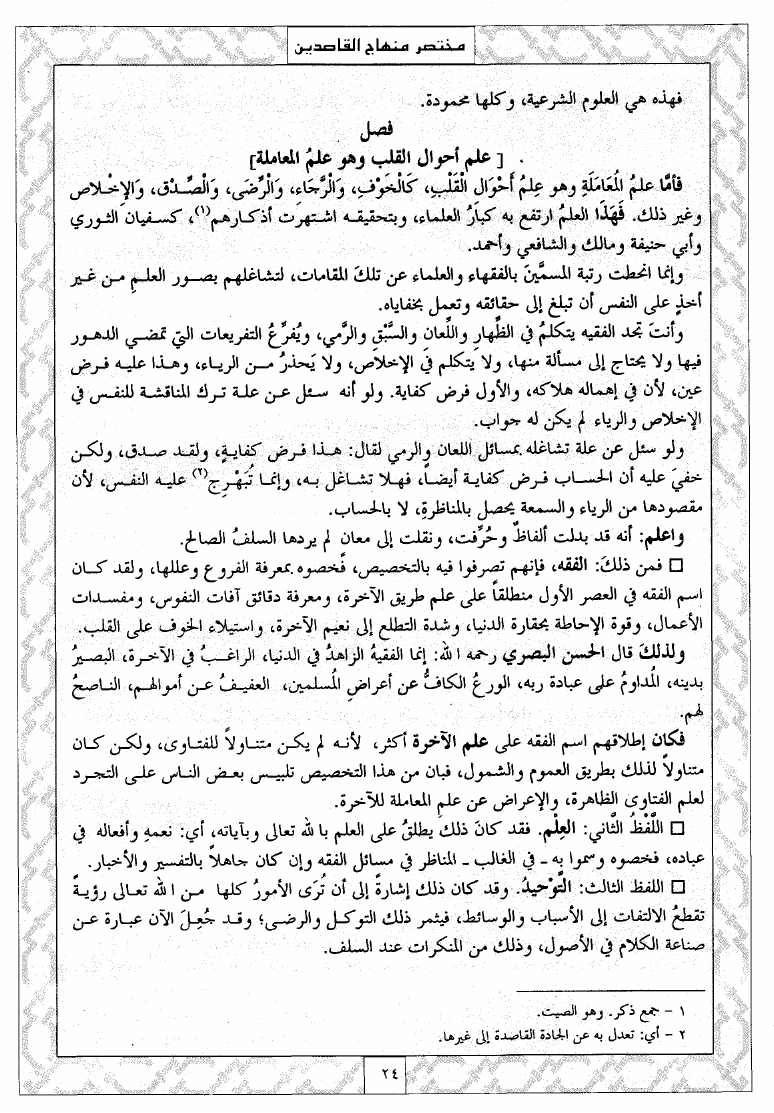 مختصر منهاج القاصدين
فهذه هي العلوم الشرعية، وكلها محمودة.
فصل
[ علم أحوال القلب وهو علمُ المعاملة]
فأمّا علمُ المُعَامَلَةِ وهو عِلمُ أَحْوَالِ القَلْبِ، كَالخَوْفِ، وَالرَّجَاءِ، وَالرِّضَى، وَالصِّدْقِ، وَالإِخْلاص
وغير ذلك. فَهَذَا العلمُ ارتفع به كبارُ العلماء، وبتحقيقه اشتهرت أذكارهم(١)، كسفيان الثوري
وأبي حنيفة ومالك والشافعي وأحمد.
وإنما انحطت رتبة المسمَّينَ بالفقهاء والعلماء عن تلكَ المقامات، لتشاغلهم بصور العلمِ من غير
أخذٍ على النفس أن تبلغ إلى حقائقه وتعمل بخفاياه.
وأنتَ تجد الفقيه يتكلمُ في الظِّهار واللِّعان والسَّبْقِ والرَّمي، ويُفرِّعُ التفريعات التي تمضي الدهور
فيها ولا يحتاج إلى مسألة منها، ولا يتكلم في الإخلاص، ولا يَحذرُ من الرياء، وهذا عليه فرض
عين، لأن في إهماله هلاكه، والأول فرض كفاية. ولو أنه سئل عن علة ترك المناقشة للنفس في
الإخلاص والرياء لم يكن له جواب.
ولو سئل عن علة تشاغله بمسائل اللعان والرمي لقال: هذا فرض كفايةٍ، ولقد صدق، ولكن
خفيَ عليه أن الحساب فرض كفاية أيضاً، فهلا تشاغل به، وإنما تُبَهْرِج(٢) عليه النفس، لأن
مقصودها من الرياء والسمعة يحصل بالمناظرةِ، لا بالحساب.
واعلم: أنه قد بدلت ألفاظٌ وحُرِّفت، ونقلت إلى معان لم يردها السلفُ الصالح.
□ فمن ذلكَ: الفقه، فإنهم تصرفوا فيه بالتخصيص، فخصوه بمعرفة الفروع وعللها، ولقد كان
اسم الفقه في العصر الأول منطلقاً على علم طريق الآخرة، ومعرفة دقائق آفات النفوس، ومفسدات
الأعمال، وقوة الإحاطة بحقارة الدنيا، وشدة التطلع إلى نعيم الآخرة، واستيلاء الخوف على القلب.
ولذلكَ قال الحسن البصري رحمه الله: إنما الفقيهُ الزاهدُ في الدنيا، الراغبُ في الآخرة، البصيرُ
بدينه، المُداومُ على عبادة ربه، الورعُ الكافُّ عن أعراضِ المُسلمين، العفيفُ عن أموالهم، الناصحُ
لهم.
فكان إطلاقهم اسم الفقه على علم الآخرة أكثر، لأنه لم يكن متناولاً للفتاوى، ولكن كان
متناولاً لذلك بطريق العموم والشمول، فبان من هذا التخصيص تلبيس بعض الناس على التجرد
لعلم الفتاوى الظاهرة، والإعراض عن علمِ المعاملة للآخرة.
□ اللَّفظُ الثَّاني: العِلْم. فقد كانَ ذلك يطلقُ على العلم بالله تعالى وبآياته، أي: نعمهِ وأفعاله في
عباده، فخصوه وسموا به - في الغالب - المناظر في مسائل الفقه وإن كان جاهلاً بالتفسير والأخبار.
□ اللفظ الثالث: التَّوْحيدُ. وقد كان ذلك إشارةً إلى أن تُرَى الأمورُ كلها من الله تعالى رؤيةً
تقطعُ الالتفات إلى الأسباب والوسائط، فيثمر ذلك التوكل والرضى؛ وقد جُعِلَ الآن عبارة عن
صناعة الكلام في الأصول، وذلك من المنكرات عند السلف.
١ - جمع ذكر. وهو الصيت.
٢ - أي: تعدل به عن الجادة القاصدة إلى غيرها.
٢٤